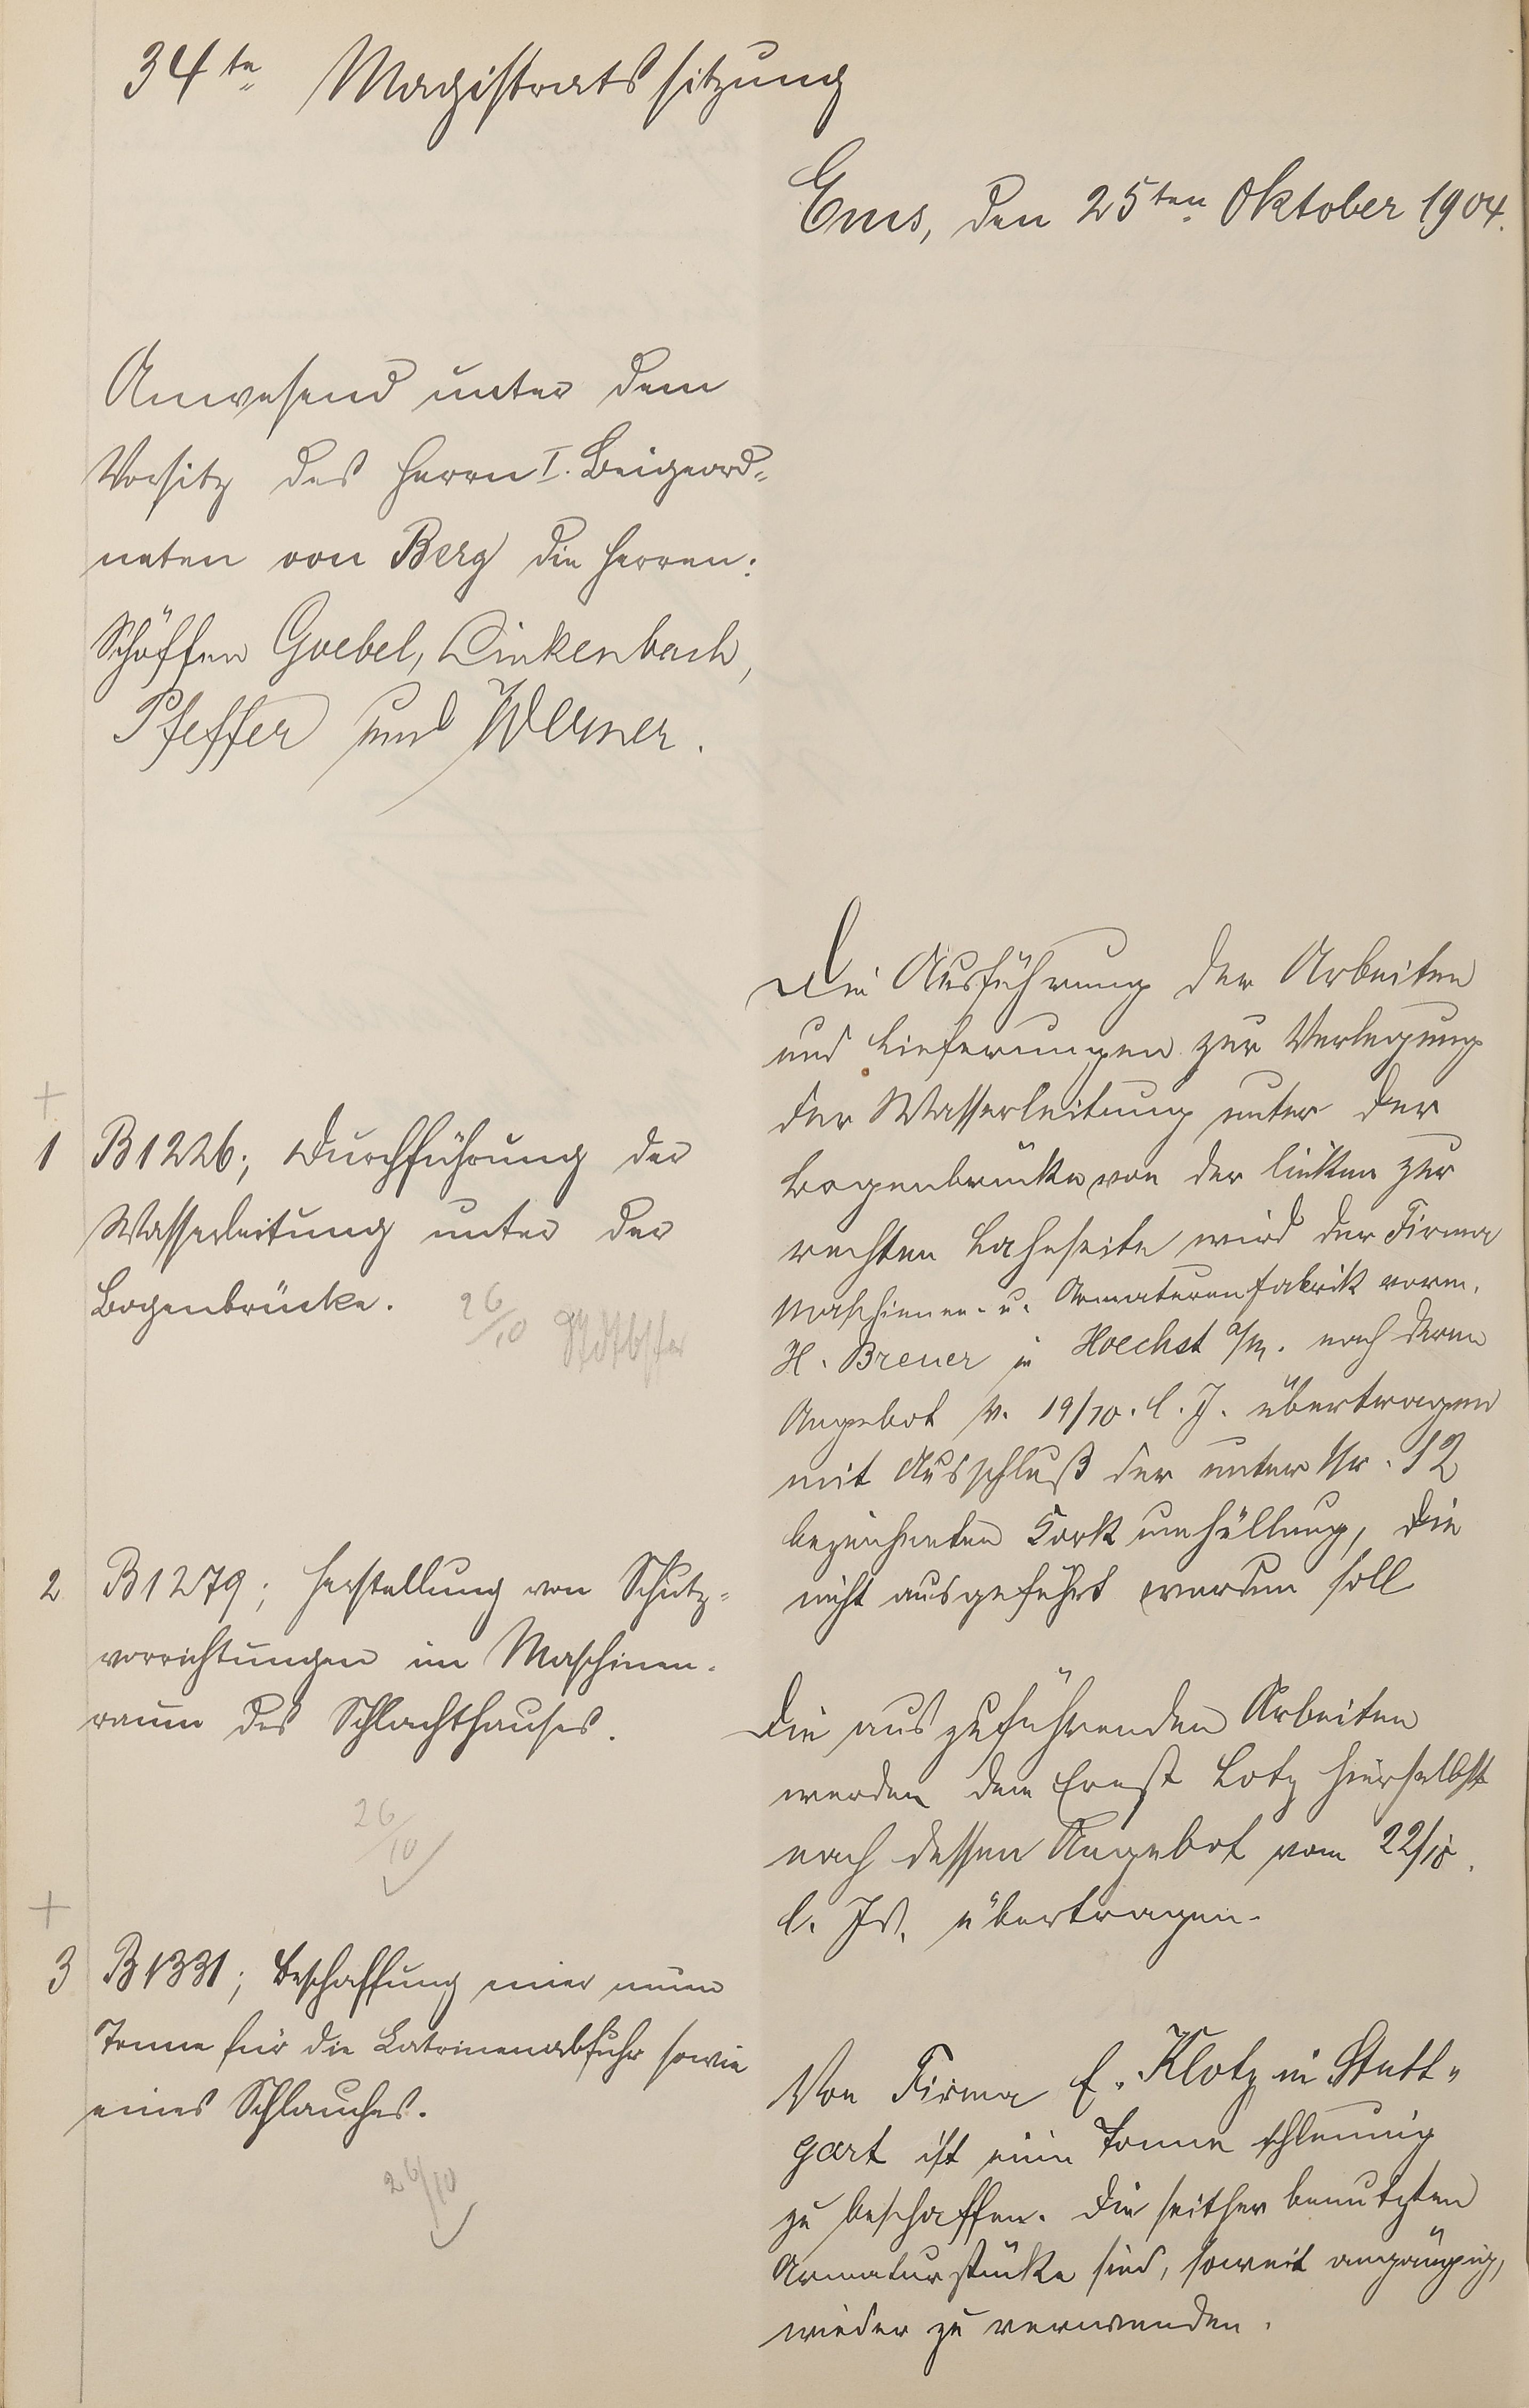 34te Magistratssitzung
Ems, den 25ten Oktober 1904.
Anwesend unter dem
Vorsitz des Herrn I. Beigeord-
neten von Berg die Herren:
Schöffen Goebel, Linkenbach,
Pfeffer und Werner.
+
1 B 1226; Durchführung der
Wasserleitung unter der
Bogenbrücke.
26/10
Die Ausführung der Arbeiten
und Lieferungen zur Verlegung
der Wasserleitung unter der
Bogenbrücke von der linken zur
rechten Lahnseite wird der Firma
Maschinen- u. Armaturenfabrik vorm.
H. Breuer in Hoechst a/M. nach deren
Angebot v. 19/10. l. J. übertragen
mit Ausschluß der unter Nr. 12
bezeichneten Korkumhüllung, die
nicht ausgeführt werden soll
2 B 1279; Herstellung von Schutz-
vorrichtungen im Maschinen-
raum des Schlachthauses.
26/10
Die auszuführenden Arbeiten
werden dem Ernst Lotz hierselbst
nach dessen Angebot vom 22/10.
l. Js. übertragen.
+
3 B 1331; Beschaffung einer neuen
Tonne für die Latrinenabfuhr sowie
eines Schlauches.
26/10
Von Firma E. Klotz in Stutt-
gart ist eine Tonne schleunig
zu beschaffen. Die seither benutzten
Armaturstücke sind, soweit angängig,
wieder zu verwenden.